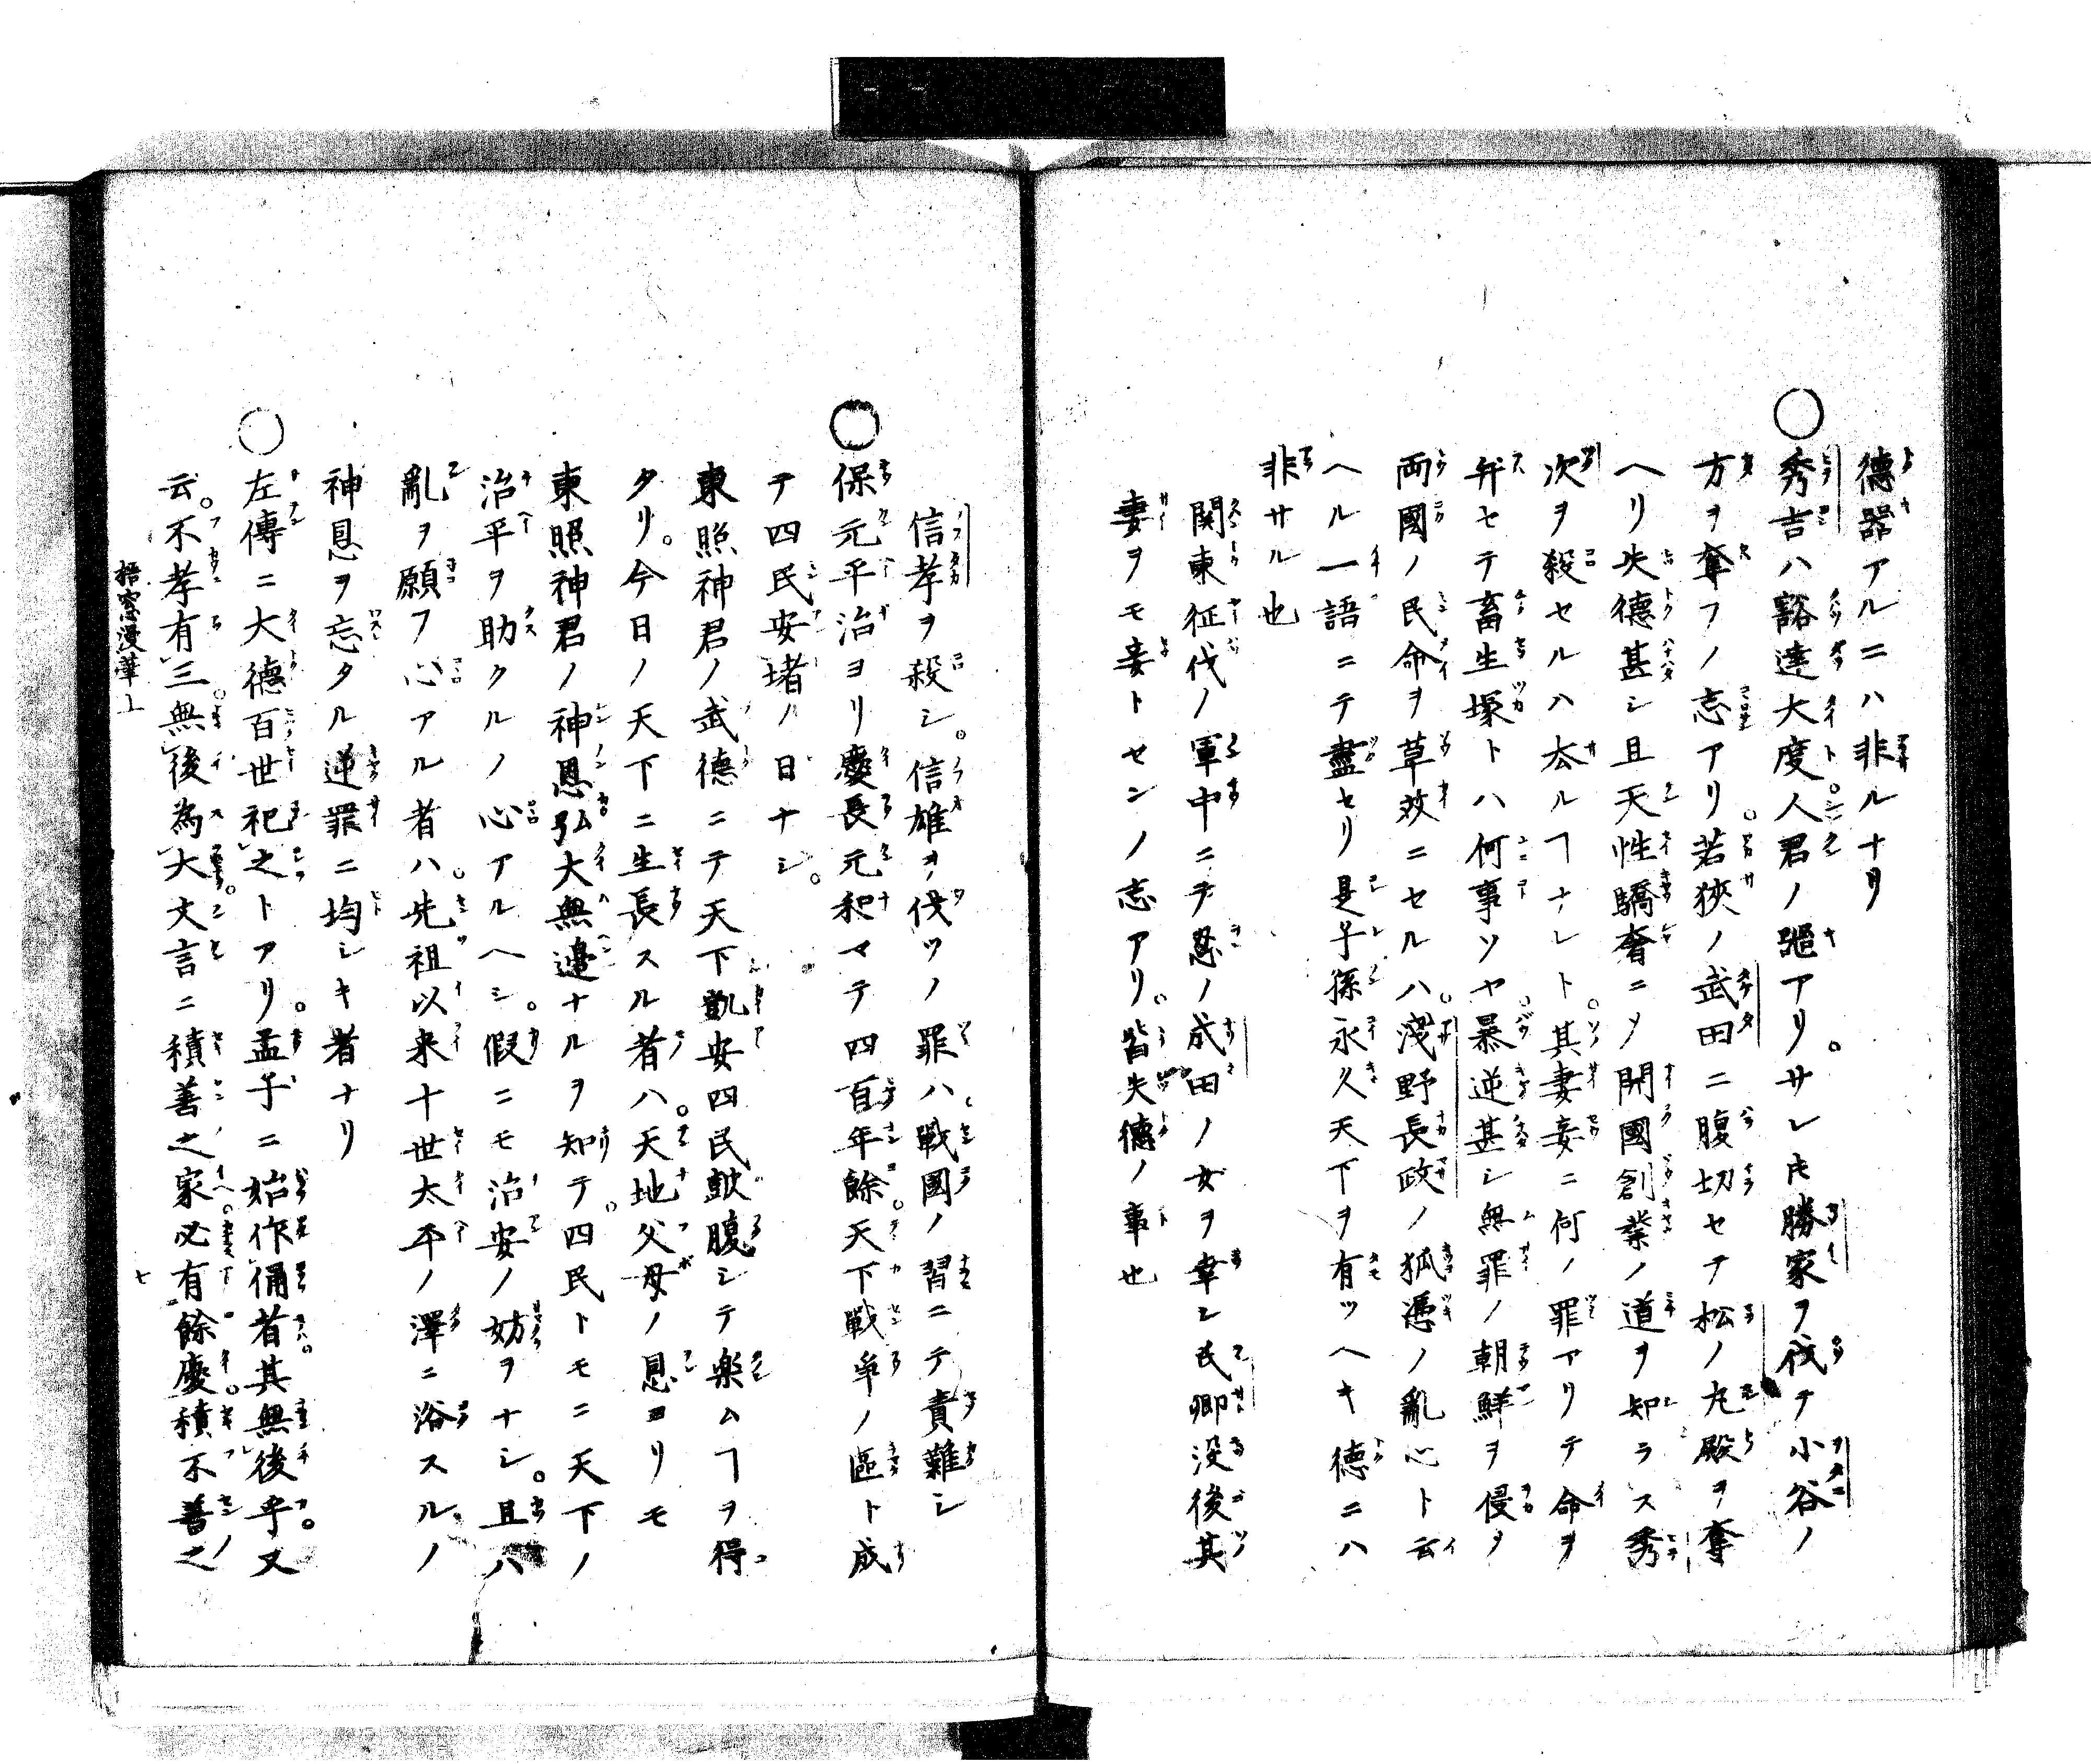 徳器アルニハ非ルナリ
○秀吉ハ豁達大度人君ノ器アリ。サレ𪜈勝家ヲ伐テ小谷ノ
方ヲ奪フノ志アリ。若狹ノ武田ニ腹切セテ松ノ丸殿ヲ奪
ヘリ失徳甚シ且天性驕奢ニメ開國創業ノ道ヲ知ラス秀
次ヲ殺セルハ厺ルヿナレト。其妻妾ニ何ノ罪アリテ命ヲ
弁セテ畜生塚トハ何事ソヤ。暴逆甚シ無罪ノ朝鮮ヲ侵タ
両國ノ民命ヲ草芥ニセルハ。淺野長政ノ狐憑ノ亂心ト云
ヘル一語ニテ盡セリ是子孫永久天下ヲ有ツヘキ徳ニハ
非サル也
関東征伐ノ軍中ニテ忍ノ成田ノ女ヲ幸シ氏郷没後其
妻ヲモ妾トセンノ志アリ。皆失徳ノ事也
信孝ヲ殺シ。信雄ヲ伐ツノ罪ハ戰國ノ習ニテ責難シ
○保元平治ヨリ慶長元和マテ四百年餘。天下戰争ノ區ト成
テ四民安堵ノ日ナシ。
東照神君ノ武徳ニテ天下凱安四民皷腹シテ楽ムヿヲ得
タリ。今日ノ天下ニ生長スル者ハ。天地父母ノ恩ヨリモ
東照神君ノ神恩弘大無邉ナルヲ知テ。四民トモニ天下ノ
治平ヲ助クルノ心アルヘシ。假ニモ治安ノ妨ヲナシ。且ハ
亂ヲ願フ心アル者ハ。先祖以来十世太平ノ澤ニ浴スルノ
神恩ヲ忘タル逆罪ニ均シキ者ナリ
○左傳ニ大徳百世祀之トアリ。孟子ニ始作俑者其無後乎。又
云。不孝有三無後為大。文言ニ積善之家必有餘慶。積不善之
梧窓漫筆上
七